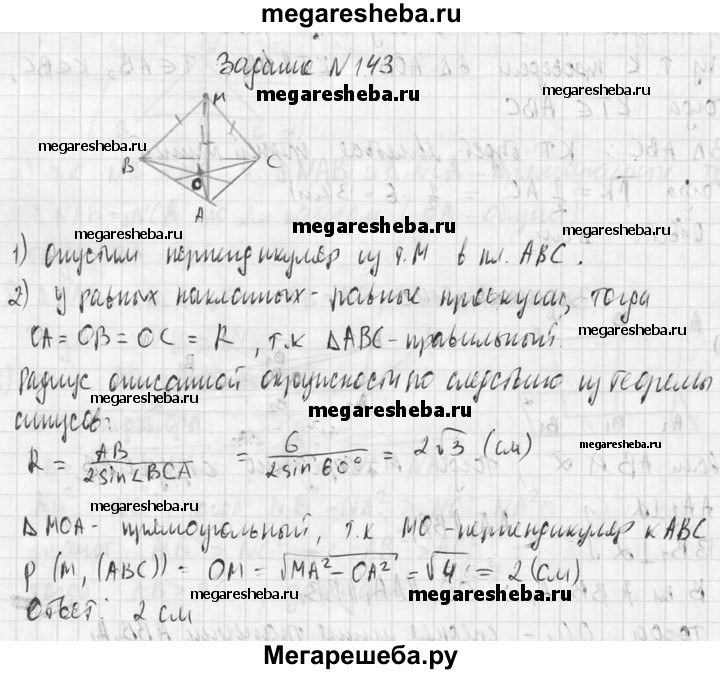 megaresheba.ru
Задание №143
megaresheba.ru
megaresheba.ru megaresheba.ru
M
B C
O
A
megaresheba.ru megaresheba.ru
1) Опустим перпендикуляр из т. M в пл. ABC.
megaresheba.ru megaresheba.ru
2) У равных наклонных - равные проекции, тогда
OA = OB = OC = R, т.к ΔABC - правильный.
megaresheba.ru
Радиус описанной окружности по следствию из теоремы
megaresheba.ru megaresheba.ru
синусов:
R = AB / 2sin∠BCA = 6 / 2sin 60° = 2√3 (см)
megaresheba.ru
megaresheba.ru
ΔMOA - прямоугольный, т.к MO - перпендикуляр к ABC
ρ (M, (ABC)) = OM = √MA² - OA² = √4 = 2 (см)
megaresheba.ru megaresheba.ru megaresheba.ru
Ответ: 2 см
Мегарешеба.ру